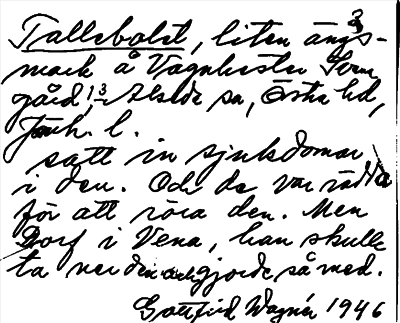 Tallebolet, liten ängs-
mark å Vagnhester Svens
gård, 1 3/- Alseda sn, Östra hd,
Jönk. l.
satt in sjukdomar
i den. Och de var rädda
för att röra den. Men
Dorf i Vena, han skulle
ta ner den och gjorde så med.
Gottfrid Wagnér 1946